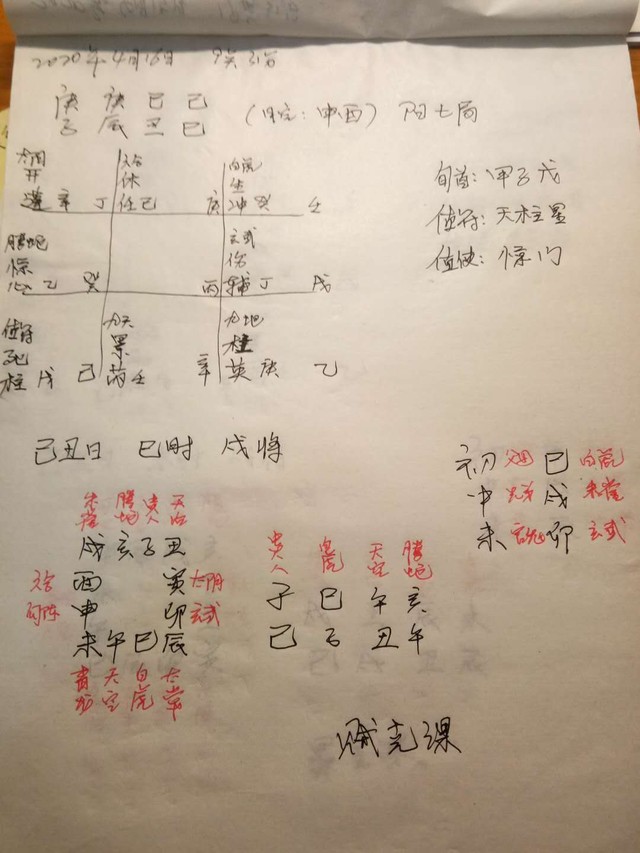 2020年4月16日
庚 庚 己 己
子 辰 丑 巳 (日空:申酉) 阳七局
旬首:甲子戊
值符:天柱星
值使:惊门
太阴 六合 白虎
开 休 生
蓬 辛 丁 任 己 庚 冲 癸 壬
腾蛇 玄武
惊 伤
心 乙 癸 丙 辅 丁 戊
值符 九天 九地
死 景 杜
柱 戊 己 芮 壬 辛 英 庚 乙
己丑日 巳时 戌将
初 父母 巳 白虎
中 兄弟 戌 朱雀
末 官鬼 卯 玄武
朱雀 腾蛇 贵人 天后
戌 亥 子 丑
六合 酉 寅 太阴
勾陈 申 卯 玄武
未 午 巳 辰
青龙 天空 白虎 太常
贵人 白虎 天空 腾蛇
子 巳 午 亥
己 子 丑 午
贼克课